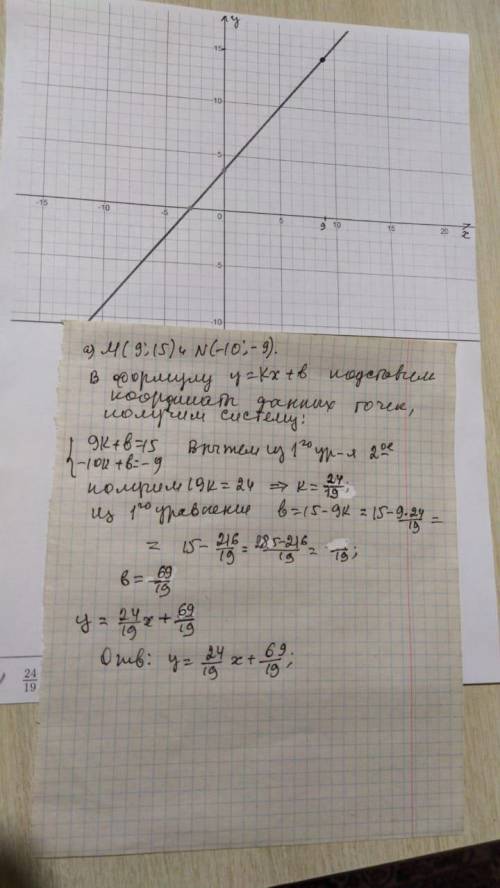 y
15
10
5
-15 -10 -5 0 5 9 10 15 20 x
-5
-10
а) М(9; 15) и N(-10; -9).
В формулу y=кx+в подставим
координаты данных точек,
получим систему:
9к+в=15 Вычтем из 1го ур-я 2ое
-10к+в=-9
получим 19к=24 ⇒ к=24/19;
из 1го уравнение в=15-9к=15-9·24/19=
= 15-216/19=285-216/19= /19;
в=69/19
y=24/19x+69/19
Отв: y=24/19x+69/19;
24/19